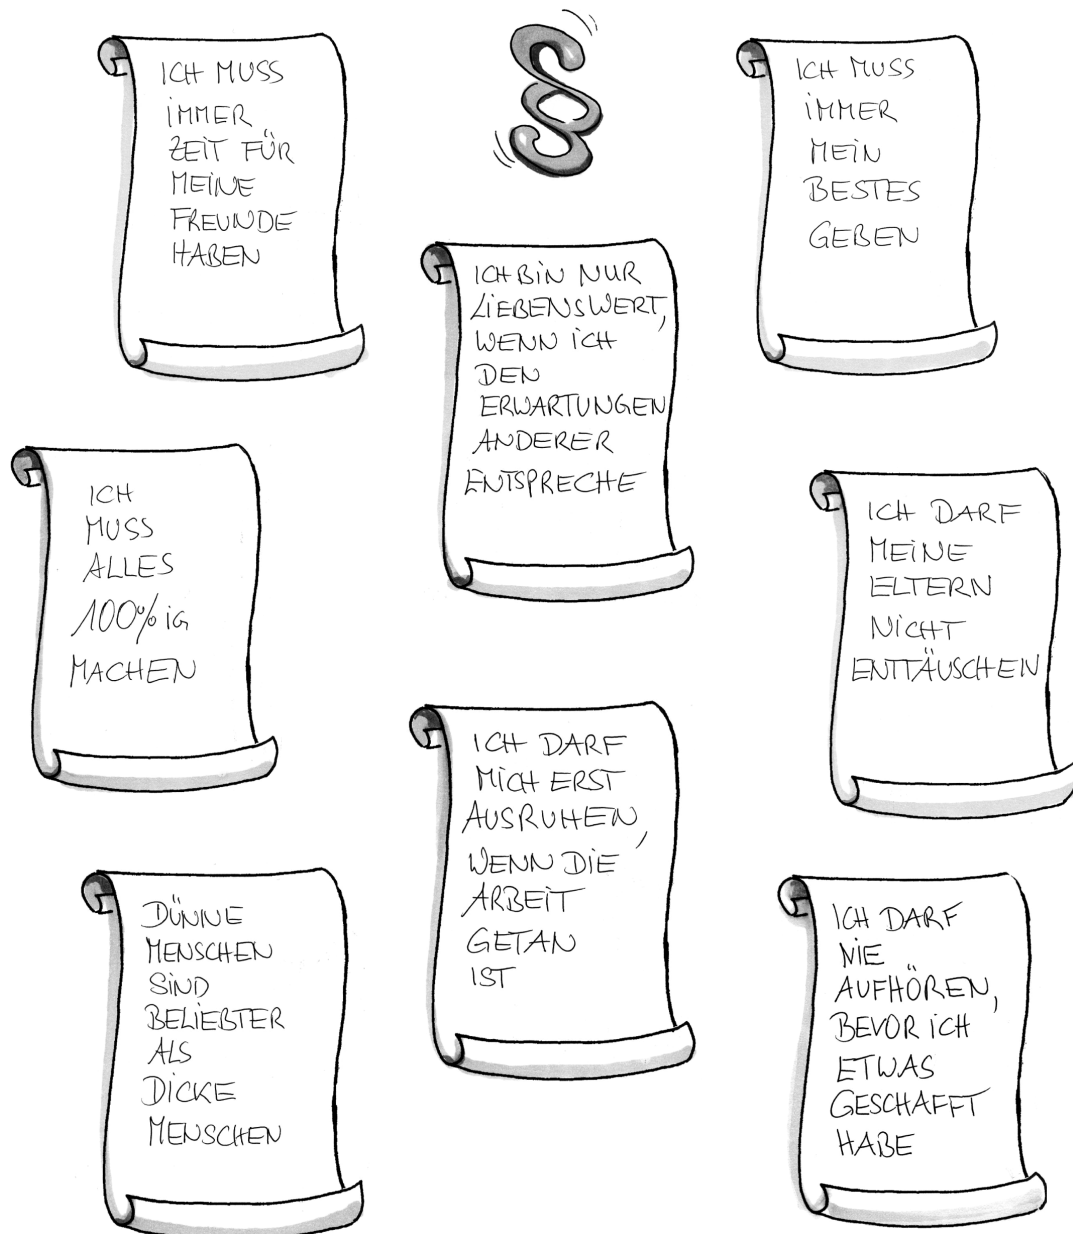 §
ICH MUSS
IMMER
ZEIT FÜR
MEINE
FREUNDE
HABEN
ICH MUSS
IMMER
MEIN
BESTES
GEBEN
ICH BIN NUR
LIEBENSWERT,
WENN ICH
DEN
ERWARTUNGEN
ANDERER
ENTSPRECHE
ICH
MUSS
ALLES
100%IG
MACHEN
ICH DARF
MEINE
ELTERN
NICHT
ENTTÄUSCHEN
ICH DARF
MICH ERST
AUSRUHEN,
WENN DIE
ARBEIT
GETAN
IST
DÜNNE
MENSCHEN
SIND
BELIEBTER
ALS
DICKE
MENSCHEN
ICH DARF
NIE
AUFHÖREN,
BEVOR ICH
ETWAS
GESCHAFFT
HABE